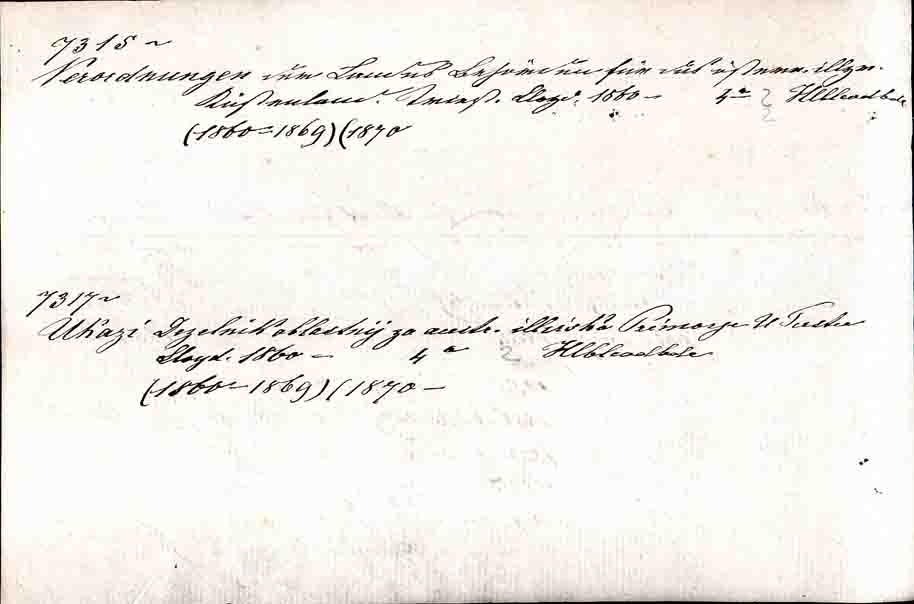 7315~
Verordnungen der Landes Behörden für das österr. illyr.
Küstenland. Triest. Lloyd. 1860 – 4°
(1860=1869)(1870
7317~
Ukazi Dezelnik oblastnij za austr. illirska Primorje U Terstu
Lloyd. 1860 – 4°
(1860=1869)(1870 –